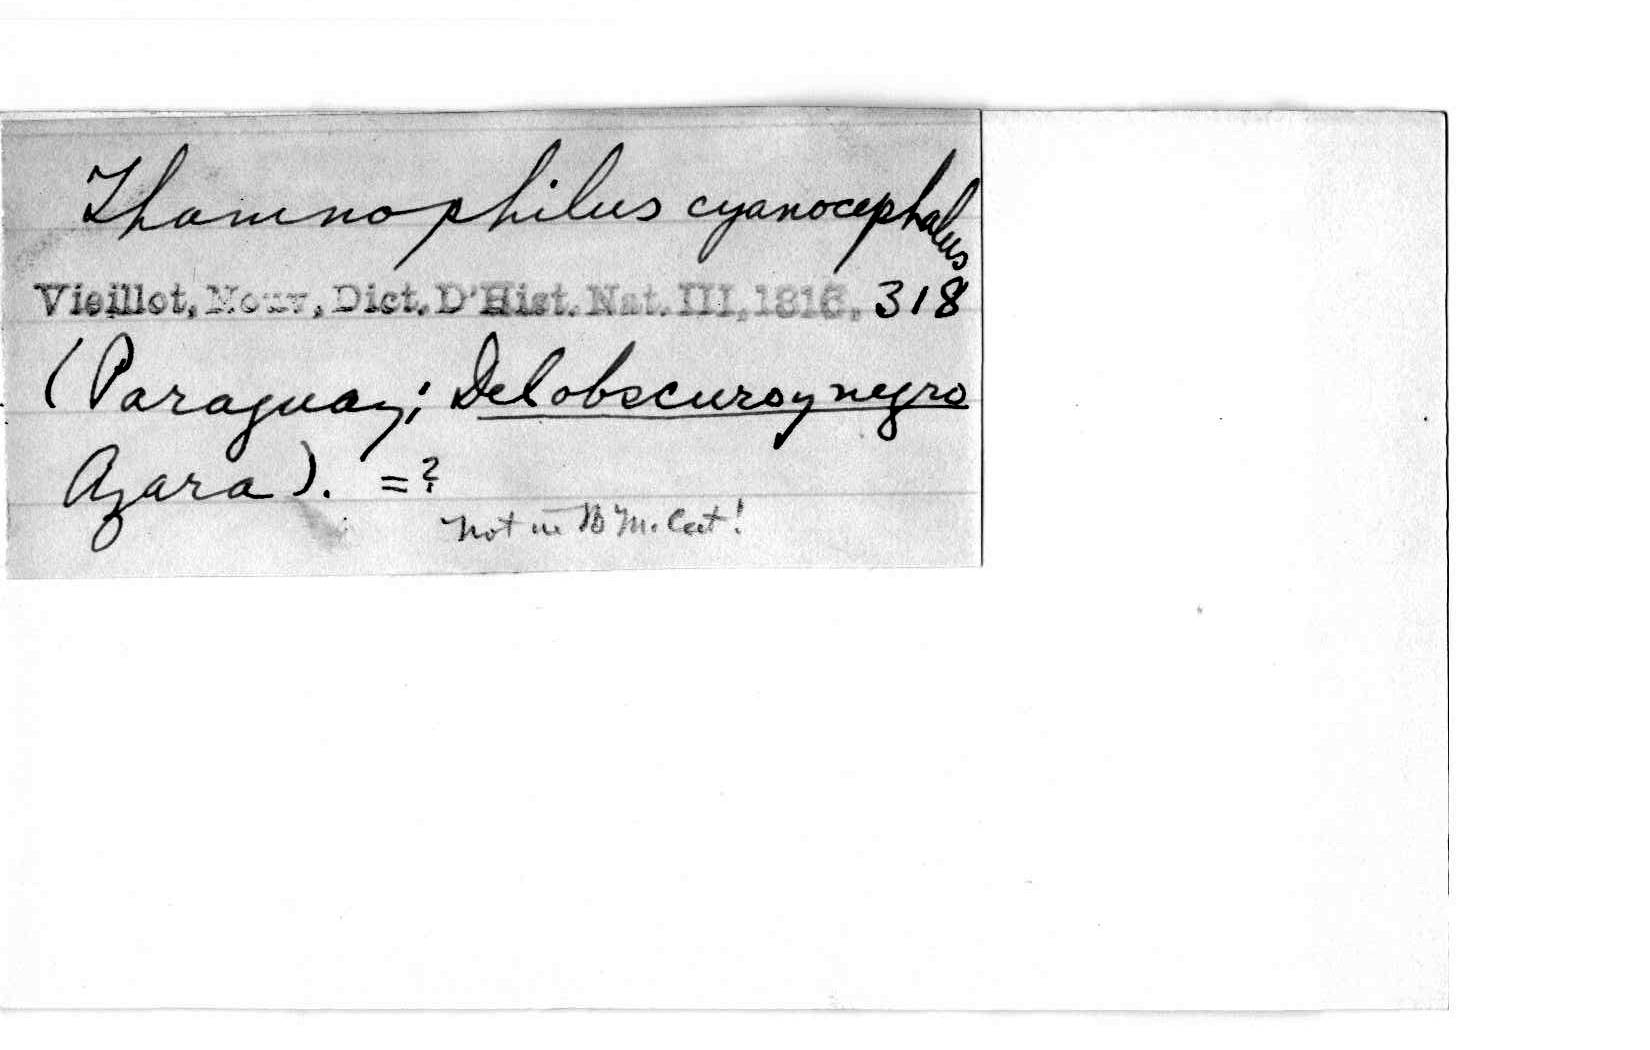 Thamnophilus cyanocephalus
Vieillot, Nouv, Dict. D'Hist. Nat. III, 1816, 318
(Paraguay; Del obscuro y negro
Azara). =?
Not in B M. Cat!